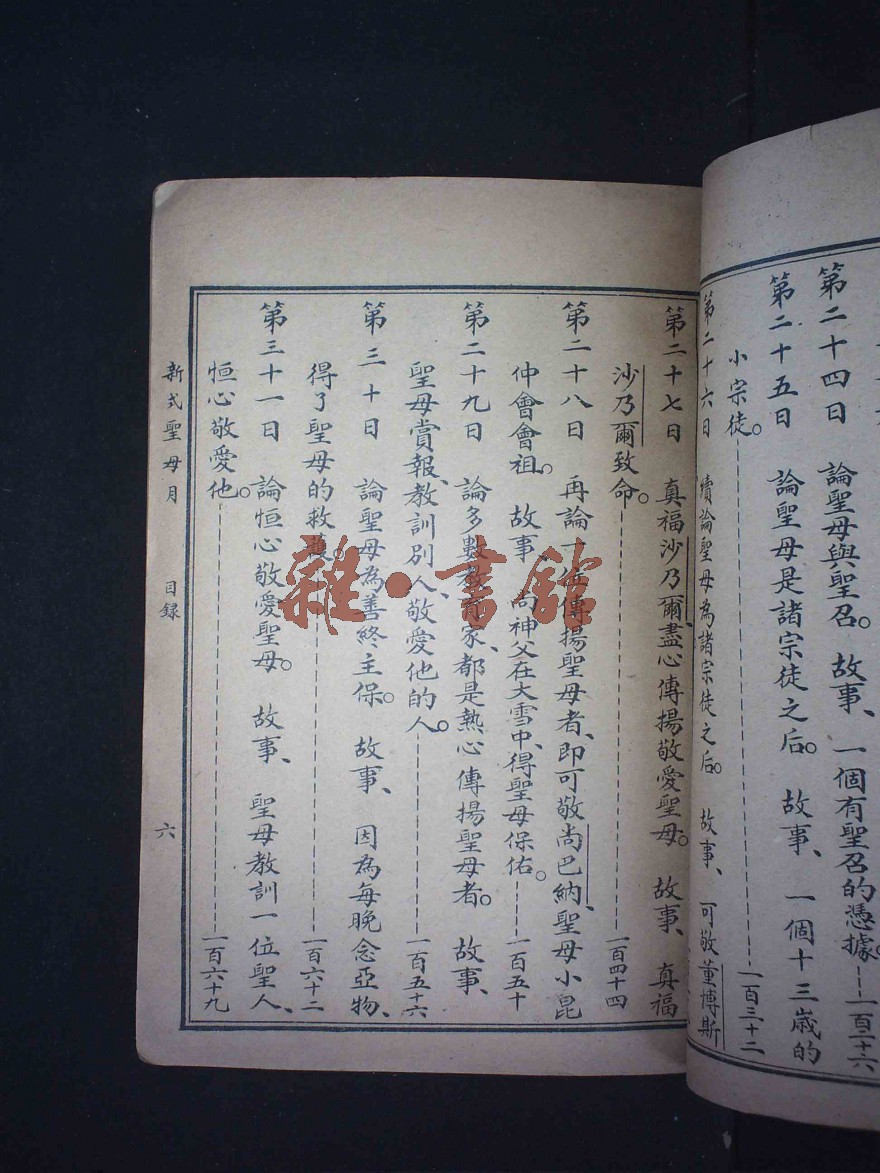 第二十四日　論聖母與聖召。故事、一個有聖召的憑據。一百二十六
第二十五日　論聖母是諸宗徒之后。故事、一個十三歲的
小宗徒。一百三十二
第二十六日　續論聖母為諸宗徒之后。故事、可敬董博斯
第二十七日　真福沙乃爾、盡心傳揚敬愛聖母。故事、真福
沙乃爾致命。一百四十四
第二十八日　再論一位傳揚聖母者、即可敬尚巴納、聖母小昆
仲會會祖。故事、尚神父在大雪中、得聖母保佑。一百五十
第二十九日　論多數教育家、都是熱心傳揚聖母者。故事、
聖母賞報、教訓別人、敬愛他的人。一百五十六
第三十日　論聖母為善終主保。故事、因為每晚念亞物、
得了聖母的救護。一百六十二
第三十一日　論恒心敬愛聖母。故事、聖母教訓一位聖人、
恒心敬愛他。一百六十九
新式聖母月　目錄　六
雜·書館